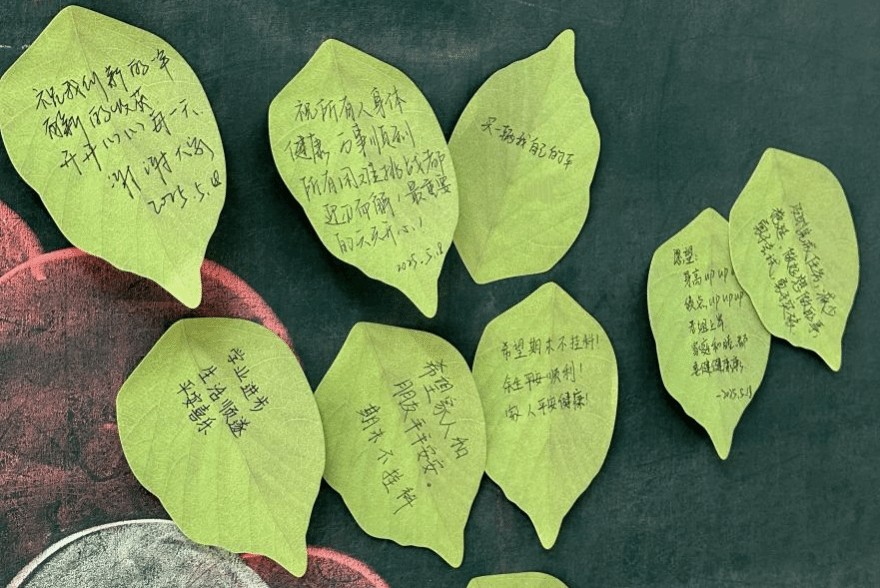 祝我们新的一年
有新的收获
开开心心每一天、
谢谢大家
2025.5.18
祝所有人身体
健康,万事顺利
所有困难挑战都
迎刃而解!最重要
的天天开心!
2025.5.18
买一辆我自己的车
愿望:
身高up up
绩点up up up
考姐上岸
家庭和睦,都
健健康康
-2025.5.18
学业进步
生活顺遂
平安喜乐
希望家人和
朋友平平安安。
期末不挂科
希望期末不挂科!
余生平安顺利!
家人平安健康!